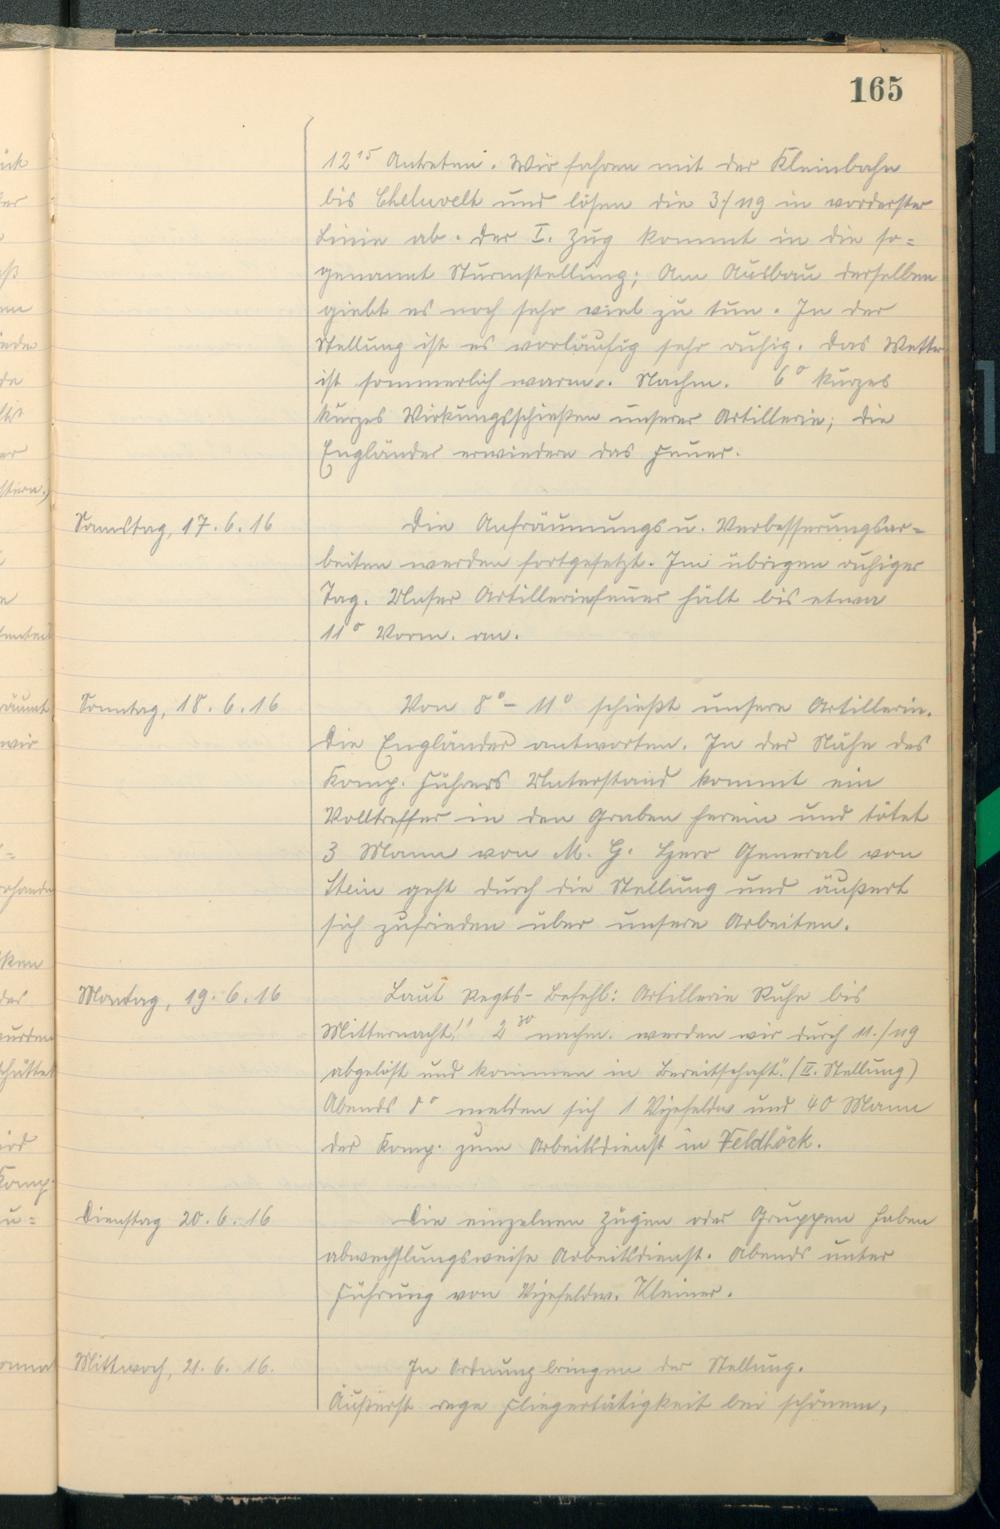 165
12 15 Antreten. Wir fahren mit der Kleinbahn
bis Cheluvelt und lösen die 3./119 in vorderster
Linie ab. Der I. Zug kommt in die so=
genannt Sturmstellung; Am Ausbau derselben
giebt es noch sehr viel zu tun. In der
Stellung ist es vorläufig sehr ruhig. Das Wetter
ist sommerlich warm. Nachm. 6 0 kurzes
kurzes Wirkungsschießen unserer Artillerie; die
Engländer erwiedern das Feuer.
Samstag, 17. 6. 16
Die Aufräumungs u. Verbesserungsar=
beiten werden fortgesetzt. Im übrigen ruhiger
Tag. Unser Artilleriefeuer hält bis etwa
11 0 Vorm. an.
Sonntag, 18. 6. 16
Von 8 0 – 11 0 schießt unsere Artillerie.
Die Engländer antworten. In der Nähe des
Komp. Führers Unterstand kommt ein
Volltreffer in den Graben herein und tötet
3 Mann von M. G. Herr General von
Stein geht durch die Stellung und äußert
sich zufrieden über unsere Arbeiten.
Montag, 19. 6. 16
Laut Regts-Befehl: Artillerie Ruhe bis
Mitternacht!" 2 30 nachm. werden wir durch 11./119
abgelöst und kommen in Bereitschaft." (II. Stellung)
Abends 8 0 melden sich 1 Vizefeldw und 40 Mann
der Komp. zum Arbeitsdienst in Feldhöck.
Dienstag 20. 6. 16
Die einzelnen Zügen oder Gruppen haben
abwechslungsweise Arbeitsdienst. Abends unter
Führung von Vizefeldw. Kleiner.
Mittwoch, 21. 6. 16.
In Ordnung bringen der Stellung.
Äußerst rege Fliegertätigkeit bei schönem,